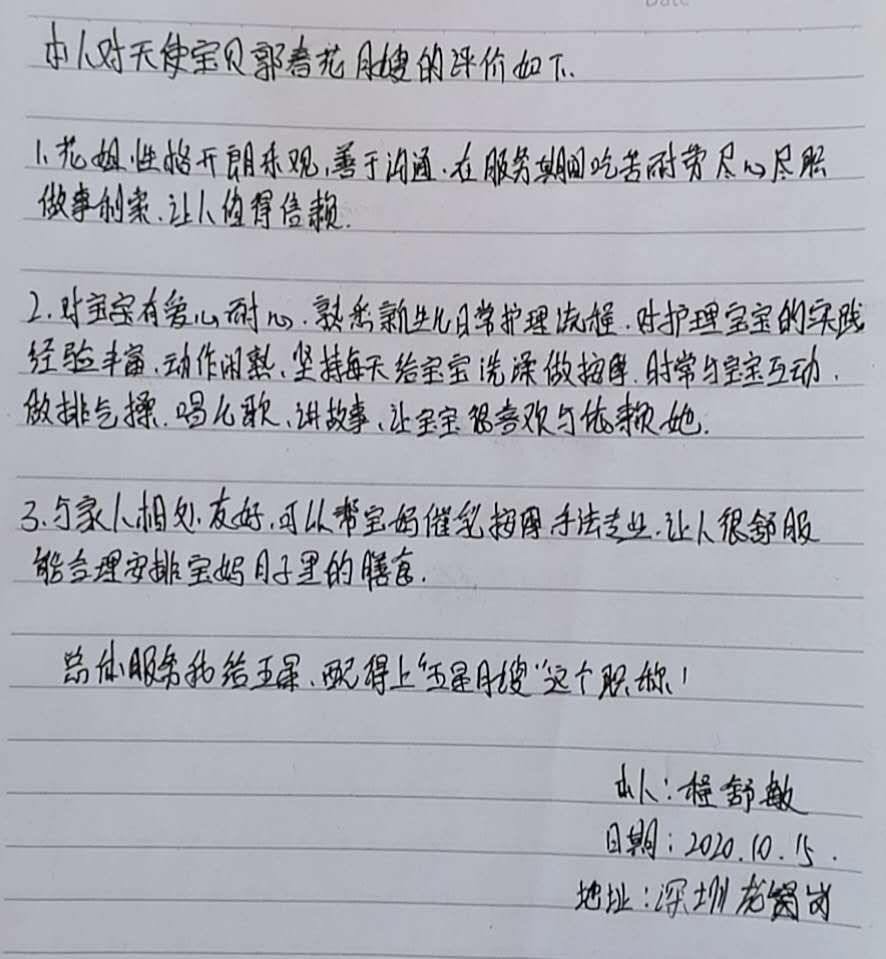 Date
本人对天使宝贝郭春花月嫂的评价如下.
1.花姐性格开朗乐观,善于沟通.在服务期间吃苦耐劳尽心尽职
做事利索.让人值得信赖.
2.对宝宝有爱心耐心.熟悉新生儿日常护理流程.对护理宝宝的实践
经验丰富.动作闲熟、坚持每天给宝宝洗澡做按摩.时常与宝宝互动.
做排气操.唱儿歌、讲故事、让宝宝很喜欢与依赖她.
3.与家人相处友好.可以帮宝妈催乳按摩手法专业.让人很舒服
能合理安排宝妈月子里的膳食.
总体服务我给五星、配得上“五星月嫂”这个职称!
本人:程舒敏
日期:2020.10.15.
地址:深圳龙岗